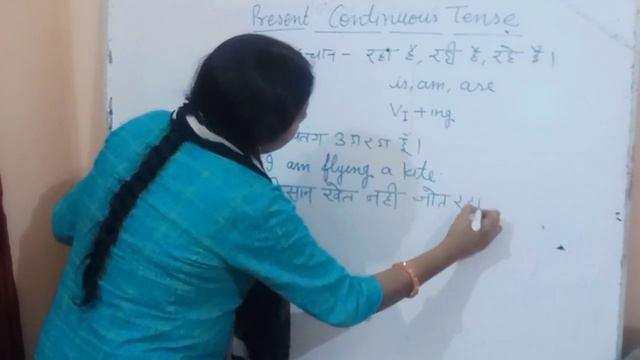 Present Continuous Tense
चान - रहा है, रही है, रहे हैं।
is, am, are
V1 + ing
हूँ।
I am flying a kite.
खेत नही जोत